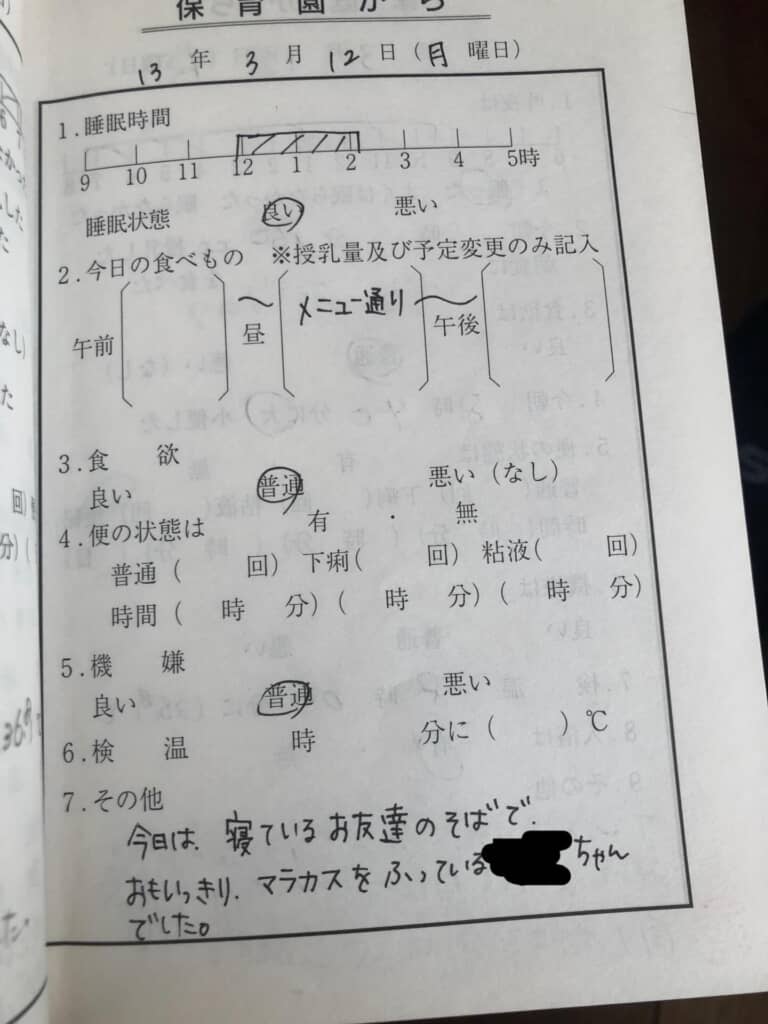 保育園から
13年 3月 12日(月 曜日)
1.睡眠時間
9 10 11 12 1 2 3 4 5時
睡眠状態 良い 悪い
2.今日の食べもの ※授乳量及び予定変更のみ記入
午前 ( ) ~ 昼 (メニュー通り) ~ 午後 ( )
3.食 欲
良い 普通 悪い(なし)
4.便の状態は 有 ・ 無
普通( 回) 下痢( 回) 粘液( 回)
時間( 時 分)( 時 分)( 時 分)
5.機 嫌
良い 普通 悪い
6.検 温 時 分に( )℃
7.その他
今日は、寝ているお友達のそばで、
おもいっきり、マラカスをふっている ちゃん
でした。